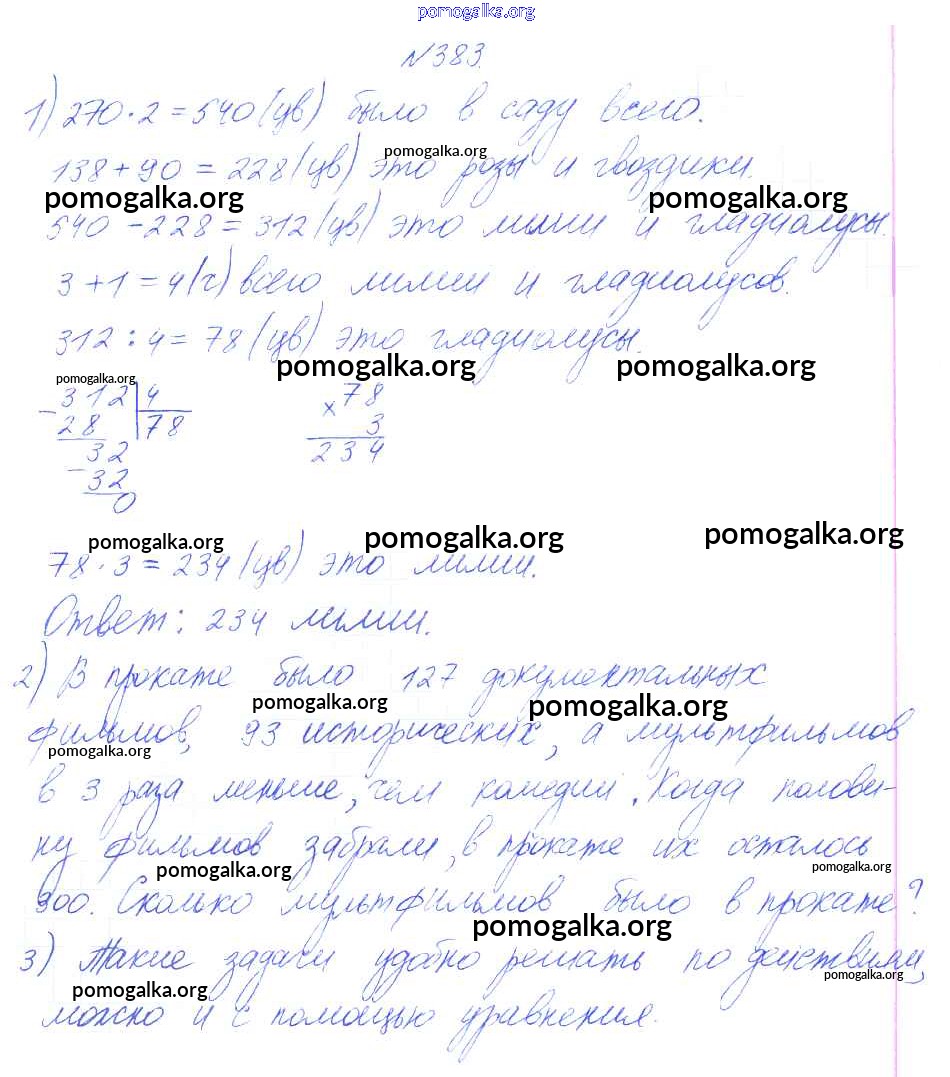 pomogalka.org
№383.
1) 270·2=540 (цв) было в саду всего.
pomogalka.org
138+90 = 228 (цв) это розы и гвоздики.
pomogalka.org pomogalka.org
540 -228 = 312 (цв) это лилии и гладиолусы.
3+1=4 (ч) всего лилии и гладиолусов.
312 : 4 = 78 (цв) это гладиолусы.
pomogalka.org pomogalka.org
pomogalka.org
- 312 4 78
28 78 x 3
32 234
- 32
0
pomogalka.org pomogalka.org pomogalka.org
78·3=234 (цв) это лилии.
Ответ: 234 лилии.
2) В прокате было 127 документальных
pomogalka.org pomogalka.org
фильмов, 93 исторических, а мультфильмов
pomogalka.org
в 3 раза меньше, чем комедии. Когда полови-
ну фильмов забрали, в прокате их осталось
pomogalka.org pomogalka.org
300. Сколько мультфильмов было в прокате?
pomogalka.org
3) Такие задачи удобно решать по действиям,
pomogalka.org pomogalka.org
можно и с помощью уравнения.